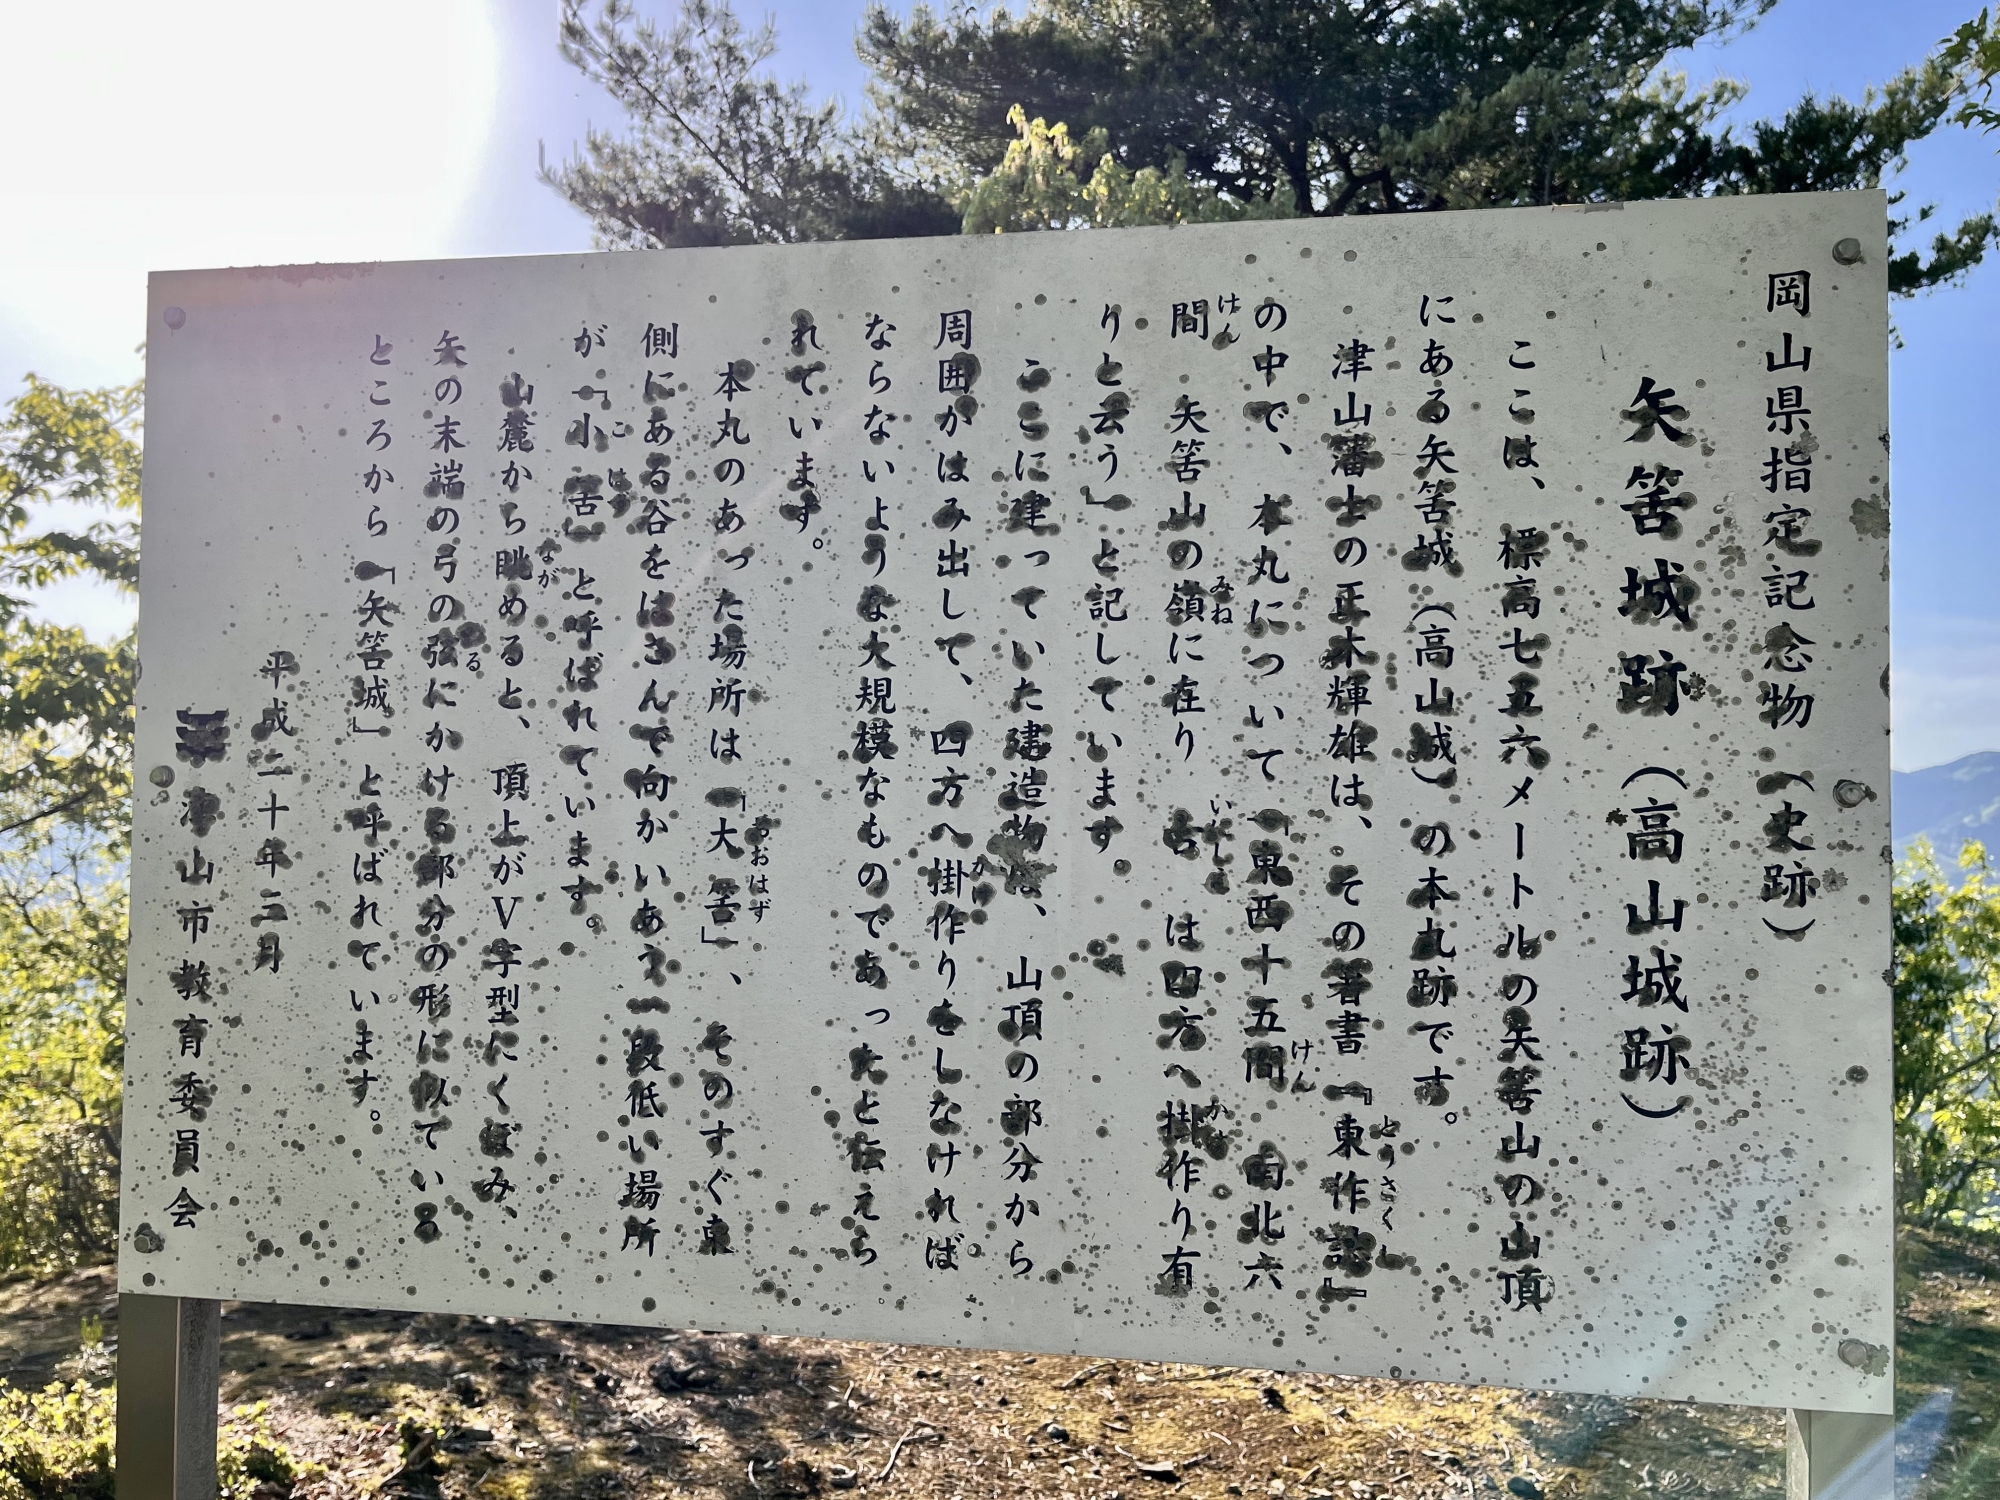 岡山県指定記念物（史跡）
矢筈城跡（高山城跡）
ここは、標高七五六メートルの矢筈山の山頂
にある矢筈城（高山城）の本丸跡です。
津山藩士の正木輝雄は、その著書『東作誌』
とうさくし
の中で、本丸について「東西十五間　南北六
けん
間　矢筈山の嶺に在り　古は四方へ掛作り有
けん　みね　いにしえ　かけ
りと云う」と記しています。
ここに建っていた建造物は、山頂の部分から
周囲がはみ出して、四方へ掛作りをしなければ
かけ
ならないような大規模なものであったと伝えら
れています。
本丸のあった場所は「大筈」、そのすぐ東
おおはず
側にある谷をはさんで向かいあう一段低い場所
が「小筈」と呼ばれています。
こはず
山麓から眺めると、頂上がV字型にくぼみ、
なが
矢の末端の弓の弦にかける部分の形に似ている
る
ところから「矢筈城」と呼ばれています。
平成二十年三月
津山市教育委員会